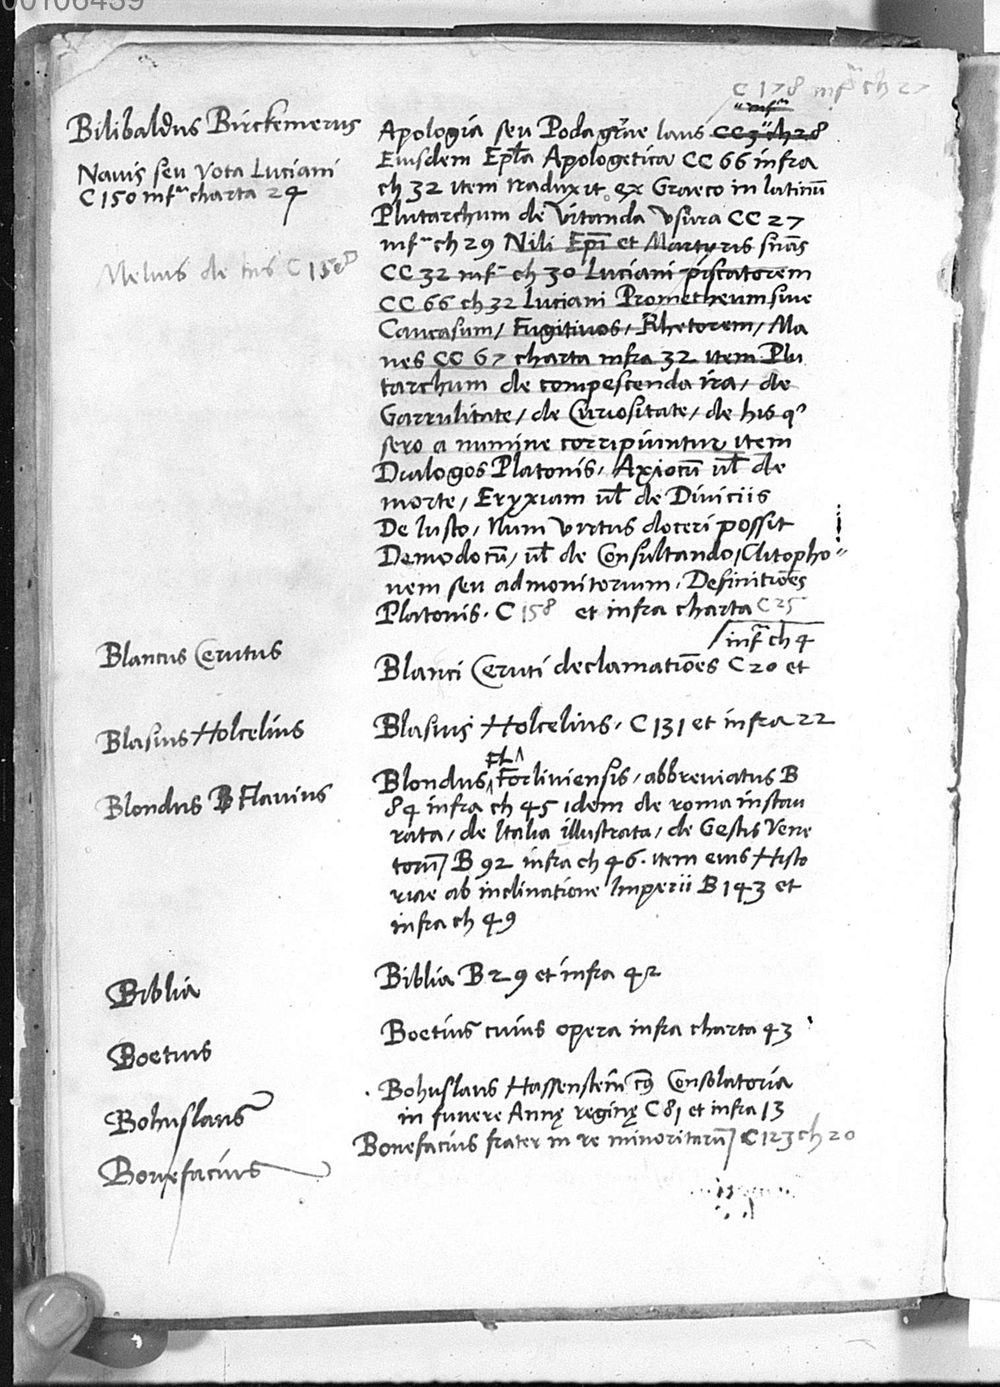 00106439
C 178 infra ch 27
Bilibaldus Birckemerus
Apologia seu Podagrae laus CC 3 ch 28
Eiusdem Epl̄a Apologetica CC 66 infra
Navis seu Vota Luciani
C 150 inf charta 24
ch 32 item traduxit ex Graeco in latinū
Plutarchum de Vitanda Vsura CC 27
inf ch 29 Nili Epī et Martyris snās
Melius de his C 158
CC 32 inf ch 30 Luciani piscatorem
CC 66 ch 32 Luciani Prometheum siue
Caucasum / Fugitiuos / Rhetorem / Ma
nes CC 67 charta infra 32 item Plu
tarchum de compescenda ira / de
Garrulitate / de Curiositate / de his q
sero a numine corripiuntur item
Dialogos Platonis, Axiocū ul̄ de
morte, Eryxiam ul̄ de Diviciis
De Iusto, Num virtus doceri possit
Demodocū, ul̄ de Consultando, Clitopho
nem seu admonitorium, Definitiōes
Platonis. C 158 et infra charta C 25
infra ch 4
Blancus Cerutus
Blanci Ceruti declamatiōes C 20 et
Blasius Holcelius
Blasius Holcelius. C 131 et infra 22
FL
Blondus B Flavius
Blondus Forliviensis, abbreviatus B
84 infra ch 45 idem de roma instau
rata, de Italia illustrata, de Gestis Vene
torū B 92 infra ch 46. item eius Histo
riae ab inclinatione Imperii B 143 et
infra ch 49
Biblia
Biblia B 29 et infra 42
Boetius
Boetius cuius opera infra charta 43
Bohuslaus
Bohuslaus Hassenstein Consolatoria
in funere Annę reginę C 81 et infra 13
Bonefacius
Bonefacius frater in re minoritarū C 123 ch 20